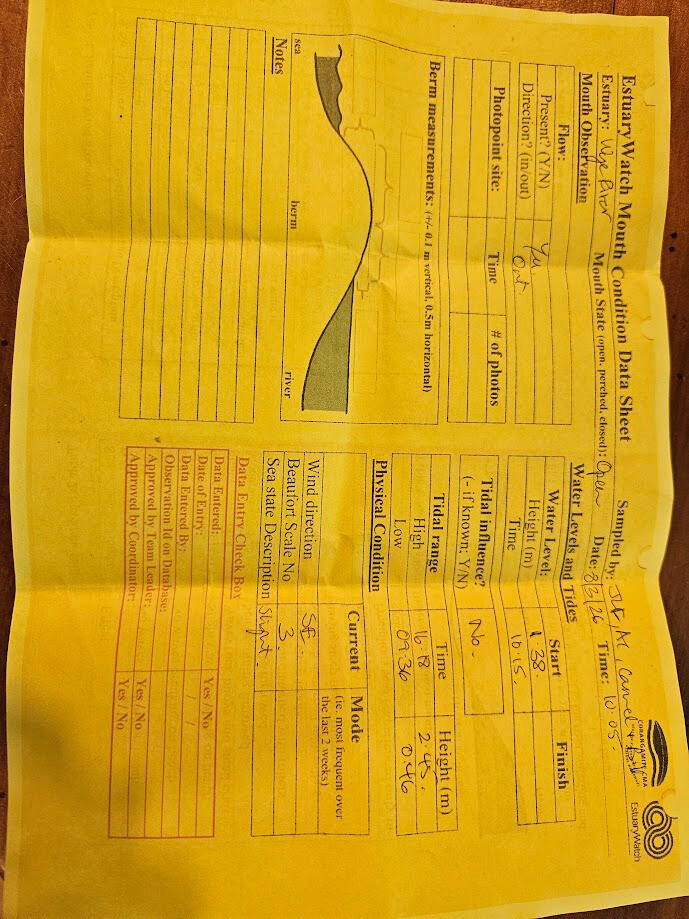 EstuaryWatch Mouth Condition Data Sheet
Sampled by:
CORANGAMITE CMA
EstuaryWatch
Estuary: Wye River
Mouth State (open, perched, closed): Open
Date: 8/3/26
Time: 10:05
Mouth Observation
Flow:
Present? (Y/N)
Direction? (in/out) Out
Photopoint site:
Time
# of photos
Berm measurements: (+/- 0.1 m vertical, 0.5m horizontal)
sea
berm
river
Notes
Water Levels and Tides
Water Level:
Start
Finish
Height (m) 1.38
Time 10:15
Tidal influence?
(- if known; Y/N)
No
Tidal range
Time
Height (m)
High 16 18 2.45
Low 09 36 0.46
Physical Condition
Current
Mode
(ie. most frequent over
the last 2 weeks)
Wind direction SE
Beaufort Scale No 3
Sea state Description Slight
Data Entry Check Box
Data Entered: Yes / No
Date of Entry: / /
Data Entered By:
Observation Id on Database:
Approved by Team Leader: Yes / No
Approved by Coordinator: Yes / No